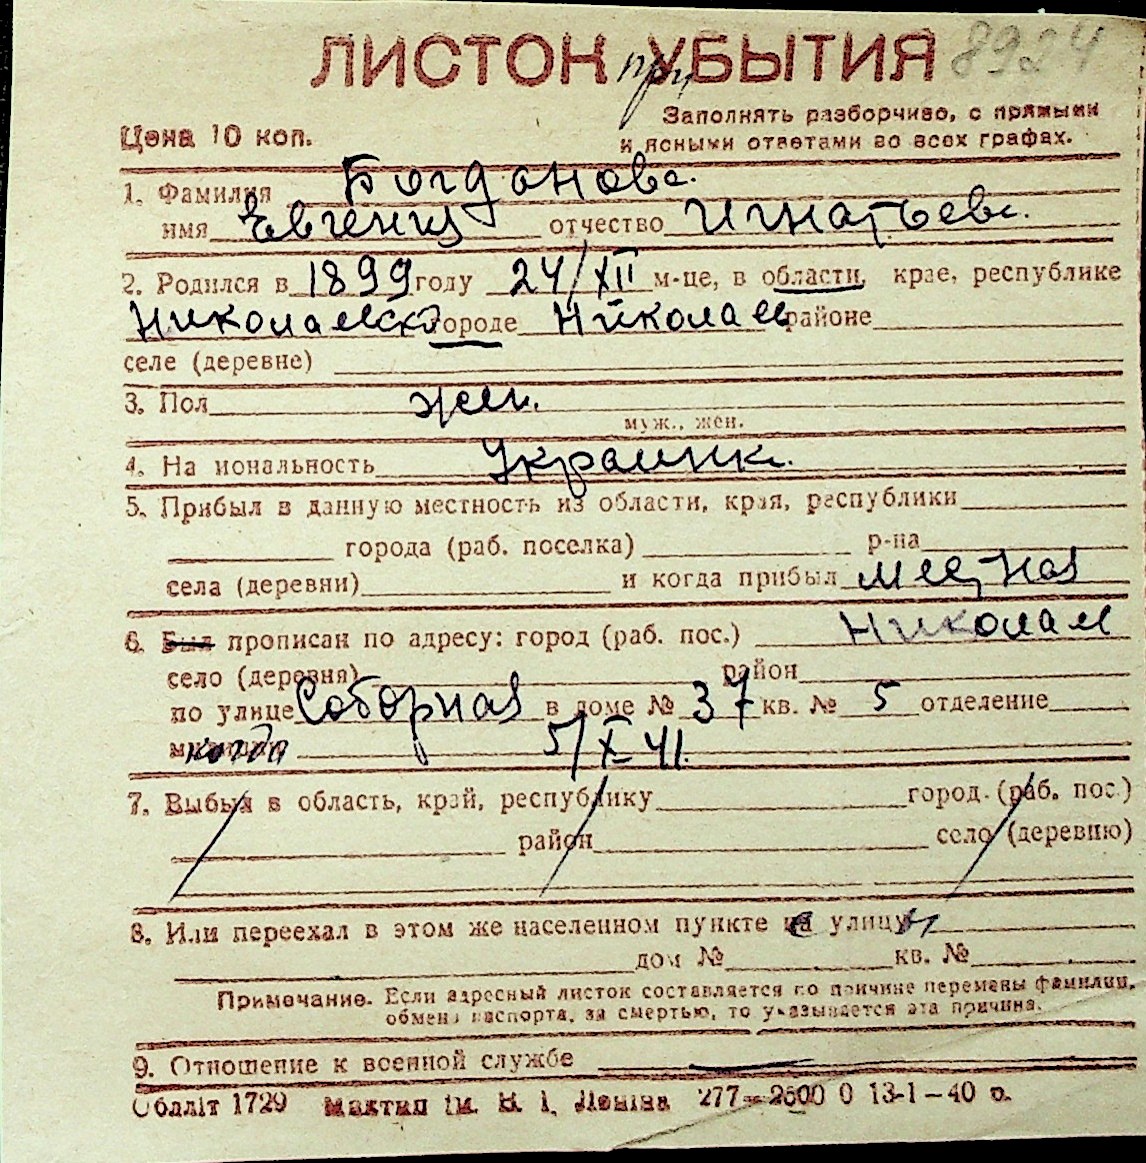 ЛИСТОК при УБЫТИЯ 8924
Цена 10 коп.
Заполнять разборчиво, с прямыми
и ясными ответами во всех графах.
1. Фамилия Богданова.
имя Евгения отчество Игнатьев.
2. Родился в 1899 году 24/XII м-це, в области, крае, республике
Николаевско городе Николаев районе
селе (деревне)
3. Пол жен.
муж., жен.
4. На иональность Украинк.
5. Прибыл в данную местность из области, края, республики
города (раб. поселка) р-на
села (деревни) и когда прибыл местная
6. Был прописан по адресу: город (раб. пос.) Николаев
село (деревня) район
по улице Соборная в доме № 37 кв. № 5 отделение
когда 5/X 41.
7. Выбыл в область, край, республику город (раб. пос.)
район село (деревню)
8. Или переехал в этом же населенном пункте с улицы
дом № кв. №
Примечание. Если адресный листок составляется по причине перемены фамилии,
обмена паспорта, за смертью, то указывается эта причина.
9. Отношение к военной службе
Облліт 1729 Миктип ім. В. І. Леніна 277—2600 0 13-1-40 р.